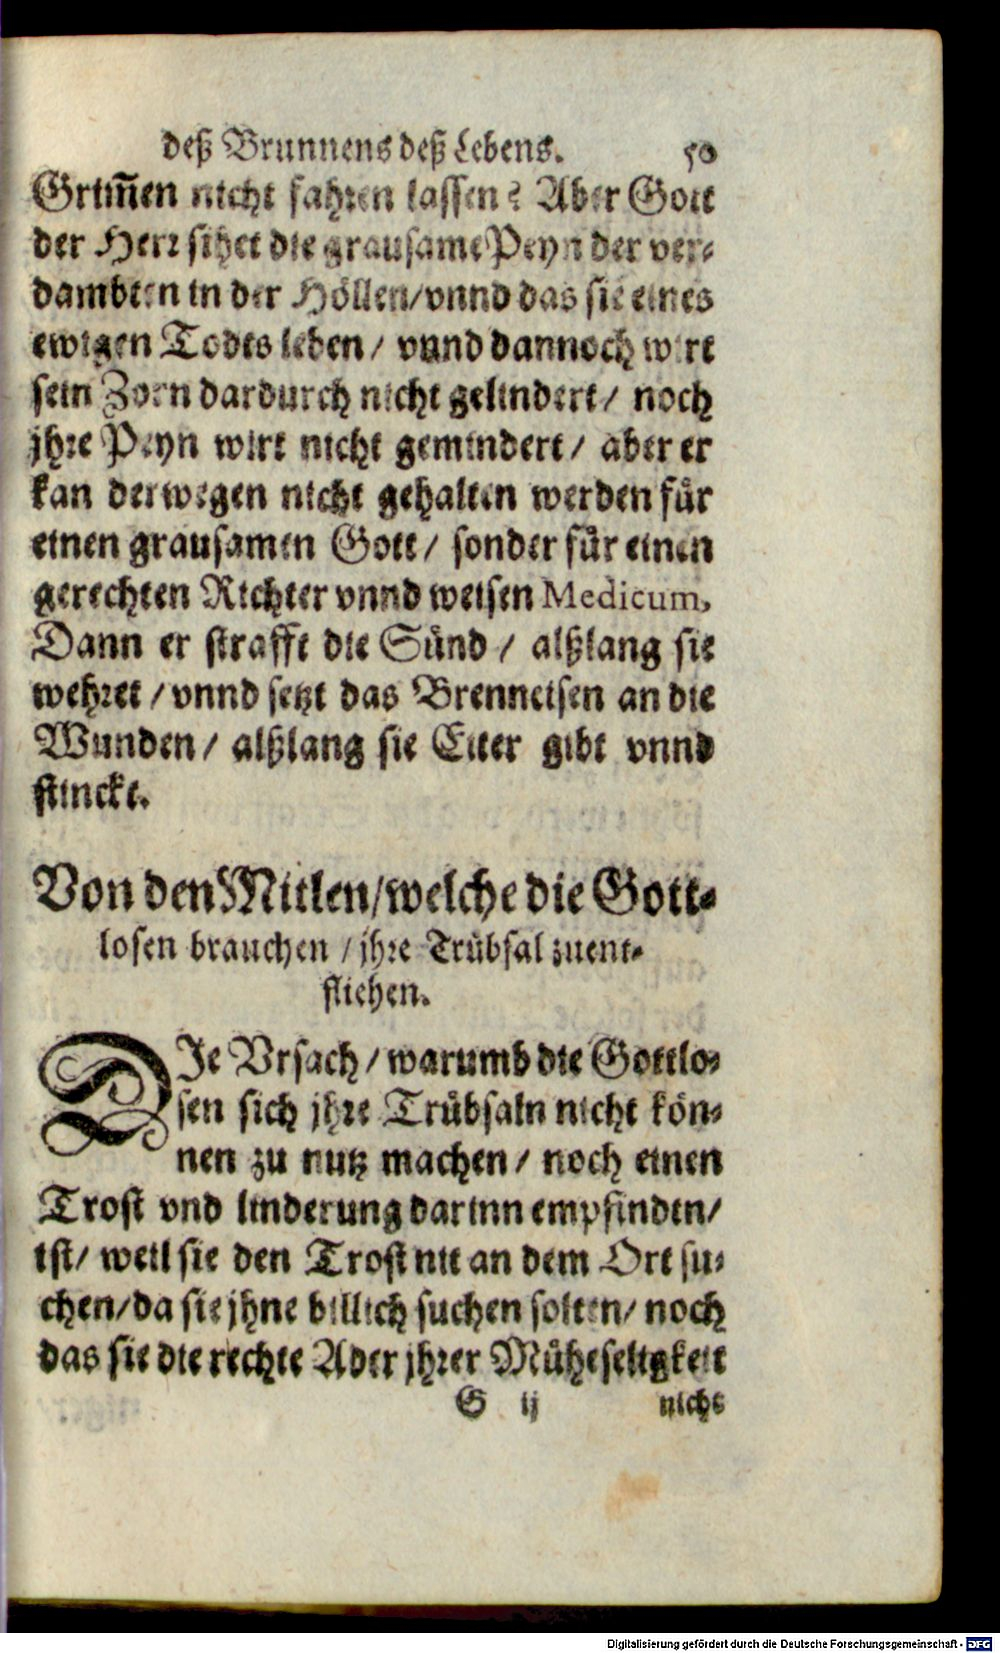 deß Brunnens deß Lebens. 50
Grim̃en nicht fahren lassen? Aber Gott
der Herr sihet die grausame Peyn der ver-
dambten in der Höllen/vnnd das sie eines
ewigen Todes leben/ vnnd dannoch wirt
sein Zorn dardurch nicht gelindert/ noch
jhre Peyn wirt nicht gemindert/ aber er
kan derwegen nicht gehalten werden für
einen grausamen Gott/ sonder für einen
gerechten Richter vnnd weisen Medicum,
Dann er strafft die Sünd/ alßlang sie
wehret/vnnd setzt das Brenneisen an die
Wunden/ alßlang sie Eiter gibt vnnd
stinckt.
Von den Mitlen/welche die Gott-
losen brauchen/jhre Trübsal zuent-
fliehen.
DIe Vrsach/warumb die Gottlo-
sen sich jhre Trübsaln nicht kön-
nen zu nutz machen/ noch einen
Trost vnd linderung darinn empfinden/
ist/ weil sie den Trost nit an dem Ort su-
chen/da sie jhne billich suchen solten/ noch
das sie die rechte Ader jhrer Müheseligkeit
G ij nicht
Digitalisierung gefördert durch die Deutsche Forschungsgemeinschaft - DFG